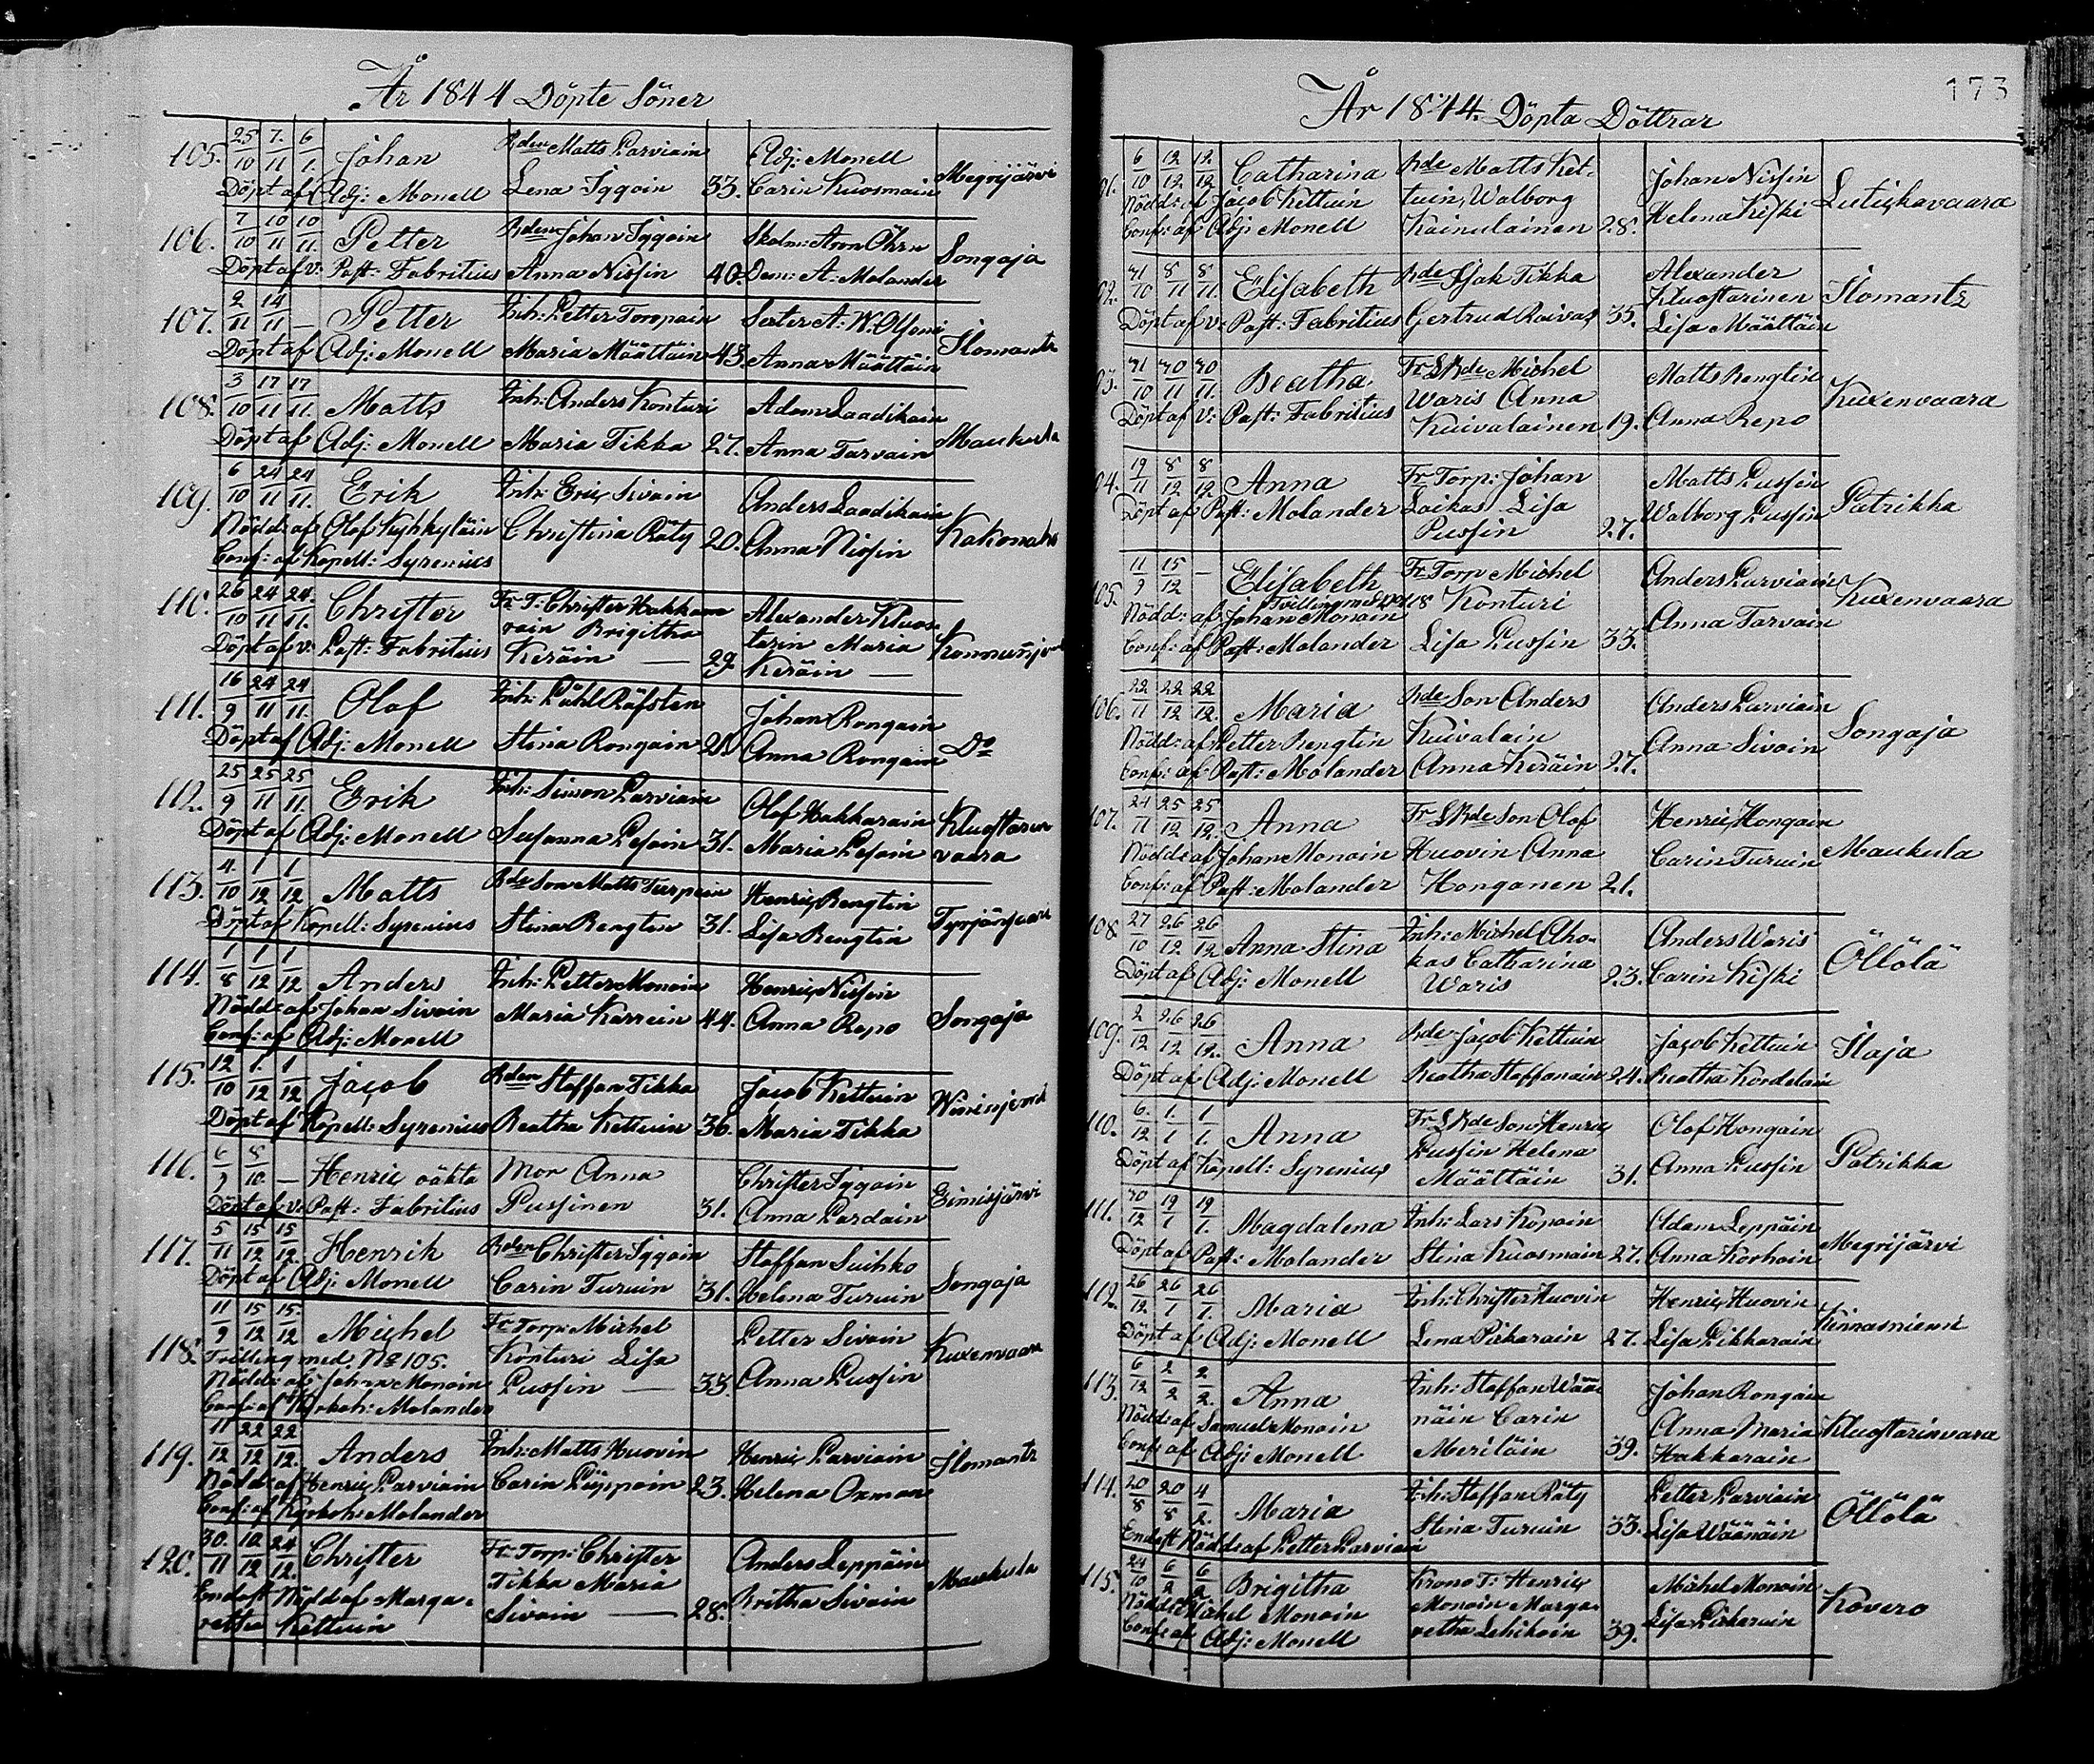 År 1844 Döpte Söner
105. 25/10 7./11 6/1. Johan Bden Matts Parviain Adj: Monell Megrijärvi
Döpt af Adj: Monell Lena Iggoin 33. Carin Kuosmain
106. 7/10 10/11 10/11. Petter Bden Johan Iggoin Skolm: Aron Öhrn Songaja
Döpt af v: Past: Fabritius Anna Nissin 40. Dem: A. Molander
107. 2/11 14/11 — Petter Inh: Petter Toropain Sexter A: W. Olsoni Ilomants
Döpt af Adj: Monell Maria Määttäin 43. Anna Määttäin
108. 3/10 17/11 17/11. Matts Inh: Anders Konturi Adam Laadikain Maukula
Döpt af Adj: Monell Maria Tikka 27. Anna Tarvain
109. 6/10 24/11 24/11. Erik Inh: Eric Sivoin Anders Laadikain
Nödd: af Olof Kyhkyläin Christina Räty 20. Anna Nissin
Conf: af Kapell: Syrenius
110. 26/10 24/11 24./11. Christer Fr. T: Christer Hakka- Alexander Kluos-
rain Brigitha tarin Maria
Döpt af v: Past: Fabritius Keräin — 29 Keräin —
111. 16/9 24/11 24/11. Olof Inh: Påhl Räfsten Johan Rongain Do
Döpt af Adj: Monell Stina Rongain 21 Anna Rongain
112. 25/9 25/11 25/11. Erik Inh: Simon Parviain Olof Hakkarain Kluostarin
Döpt af Adj: Monell Susanna Pesoin 31. Maria Pesoin vaara
113. 4./10 1/12 1/12 Matts Bde Son Matts Turpain Henric Bengtin
Döpt af Kapell: Syrenius Stina Bengtin 31. Lisa Bengtin
114. 1/8 1/12 1/12 Anders Inh: Petter Monoin Henric Nissin Songaja
Nödd: af Johan Sivoin Maria Karrein 44. Anna Repo
Conf: af Adj: Monell
115. 12/10 1./12 1/12 Jacob Bden Staffan Tikka Jacob Kettuin
Döpt af Kapell: Syrenius Beatha Kettuin 36. Maria Tikka
116. 6/9 8/10 — Henric oäkta Mor Anna Christer Iggoin Eimisjärvi
Döpt af v: Past: Fabritius Pussinen 31. Anna Pardain
117. 5/11 15/12 15/12. Henrik Bden Christer Iggoin Staffan Suihko Songaja
Döpt af Adj: Monell Carin Turuin 31. Helena Turuin
118. 11/9 15/12 15./12 Michel Fr. Torp: Michel Petter Sivoin Kuxenvaara
Tvilling med No 105. Konturi Lisa
Nödd: af Johan Monoin Pussin — 33 Anna Pussin
Conf: af Kyrkoh: Molander
119. 11/12 22/12 22/12. Anders Inh: Matts Huovin Henric Parviain Ilomants
Nödd: af Henric Parviain Carin Pÿppoin 23. Helena Oxman
Conf: af Kyrkoh: Molander
120. 30./11 10./12 24/12. Christer Fr. Torp: Christer Anders Leppäin Maukula
Tikka Maria
Endast Nödd af Marga- Sivoin — 28. Britha Sivoin
retha Kettuin
173
År 1844. Döpta Döttrar
101. 6/10 12/12 12/12 Catharina Bde Matts Ket- Johan Nissin Lutiskavaara
Nödd: af Jacob Kettuin tuin, Walborg Helena Kiski
Conf: af Adj: Monell Kainulainen 28.
102. 31/10 8/11 8/11. Elisabeth Bde Isak Tikka Alexander Ilomants
Kluostarinen
Döpt af v: Past: Fabritius Gertrud Raivas 35. Lisa Määttäin
103. 31/10 30/11 30/11. Beatha Fr. SBde Michel Matts Bengtin Kuxenvaara
Waris Anna
Döpt af v: Past: Fabritius Kuivalainen 19. Anna Repo
104. 19/11 8/12 8/12 Anna Fr. Torp: Johan Matts Pussin Patrikka
Döpt af Past: Molander Laikas Lisa Walborg Pussin
Pussin 27.
105. 11/9 15/12 — Elisabeth Fr Torp Michel Anders Parviain Kuxenvaara
Tvilling med No 118
Nödd: af Johan Monoin Konturi Anna Tarvain
Conf: af Past: Molander Lisa Pussin 33.
106. 22/11 22/12 22/12. Maria Bde Son Anders Anders Parviain Songaja
Nödd: af Petter Bengtin Kuivalain Anna Sivoin
Conf: af Past: Molander Anna Keräin 27.
107. 24/11 25/12 25/12. Anna Fr. SBde Son Olof Henric Hongain Maukula
Nödd: af Johan Monoin Huovin Anna Carin Turuin
Conf: af Past: Molander Honganen 21.
108 27/10 26/12 26/12 Anna Stina Inh: Michel Aho- Anders Waris Öllölä
kas Catharina
Döpt af Adj: Monell Waris 23. Carin Kiski
109. 2/12 26/12 26/12. Anna Bde Jacob Kettuin Jacob Kettuin Ilaja
Döpt af Adj: Monell Beatha Staffanain 24. Beatha Kordelain
110. 6./12 1./1 1/1. Anna Fr. SBde Son Henric Olof Hongain Patrikka
Pussin Helena
Döpt af Kapell: Syrenius Määttäin 31. Anna Pussin
111. 30/12 19/1 19/1. Magdalena Inh: Lars Kopoin Adam Leppäin Megrijärvi
Döpt af Past: Molander Stina Kuosmain 27. Anna Korhoin
112. 26/12 26/1 26/1. Maria Inh: Christer Huovin Henric Huovin Kinnasniemi
Döpt af Adj: Monell Lena Pikarain 27. Lisa Pikkarain
113. 6/12 2/2 2/2. Anna Inh: Staffan Wää- Johan Rongain Kluostarinvara
Nödd: af Samuel Monoin näin Carin Anna Maria
Conf: af Adj: Monell Meriläin 39. Hakkarain
114. 20/8 20/8 4/2. Maria Inh: Staffan Räty Petter Parviain Öllölä
Stina Turuin 33. Lisa Wäänäin
Endast Nödd af Petter Parviain
115. 24/10 6/2 6/2 Brigitha Krono T: Henric Michel Monoin Kovero
Nödd af Michel Monoin Monoin Marga- Lisa Pikarain
Conf: af Adj: Monell retha Lehikoin 39.